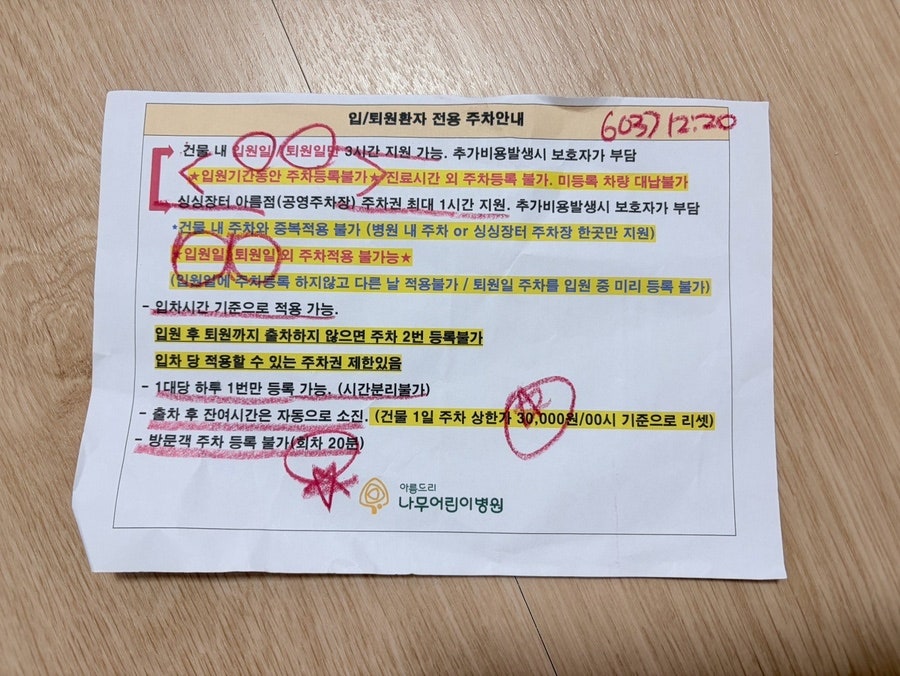 입/퇴원환자 전용 주차안내
6037 12:20
건물 내 입원일 / 퇴원일만 3시간 지원 가능. 추가비용발생시 보호자가 부담
★입원기간동안 주차등록불가★ 진료시간 외 주차등록 불가. 미등록 차량 대납불가
싱싱장터 아름점(공영주차장) 주차권 최대 1시간 지원. 추가비용발생시 보호자가 부담
*건물 내 주차와 중복적용 불가 (병원 내 주차 or 싱싱장터 주차장 한곳만 지원)
★입원일/퇴원일 외 주차적용 불가능★
(입원일에 주차등록 하지않고 다른 날 적용불가 / 퇴원일 주차를 입원 중 미리 등록 불가)
- 입차시간 기준으로 적용 가능.
입원 후 퇴원까지 출차하지 않으면 주차 2번 등록불가
입차 당 적용할 수 있는 주차권 제한있음
- 1대당 하루 1번만 등록 가능. (시간분리불가)
- 출차 후 잔여시간은 자동으로 소진. (건물 1일 주차 상한가 30,000원/00시 기준으로 리셋)
- 방문객 주차 등록 불가(회차 20분)
아름드리
나무어린이병원